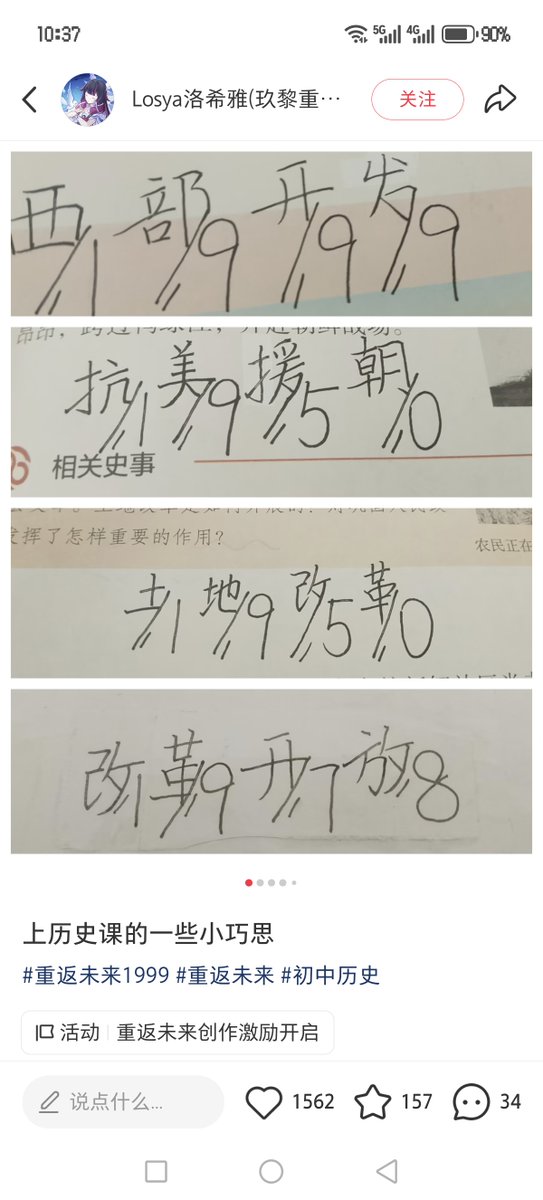 10:37
5G 4G 90%
Losya洛希雅(玖黎重…
关注
西1部9开9发9
抗1美9援5朝0
相关史事
发挥了怎样重要的作用?
农民正在
土1地9改5革0
改1革9开7放8
上历史课的一些小巧思
#重返未来1999 #重返未来 #初中历史
活动 重返未来创作激励开启
说点什么... 1562 157 34